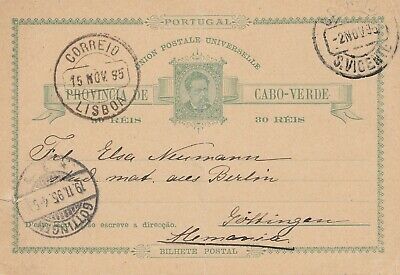 PORTUGAL
UNION POSTALE UNIVERSELLE
CORREIO
15 NOV. 95
LISBOA
-2NOV.95
S. VICENTE
PROVINCIA DE CABO-VERDE
30 REIS 30 REIS
Frl. Elsa Neumann
stud. mat. aus Berlin
Göttingen
19.11.95.4-5
GÖTTINGEN
D'este lado só se escreve a direcção.
Alemania
BILHETE POSTAL